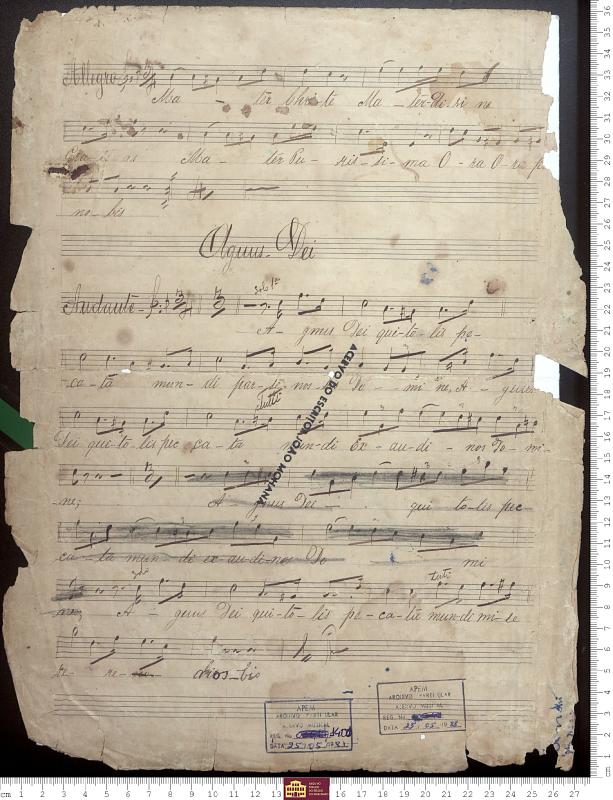 Allegro
Ma - ter Chris-te Ma - ter-di-vi ne
Ma - ter Pu - ris - si - ma O - ra O - ra p
no - bis
Agnus - Dei
Andante
A - gnus Dei qui - to - lis pe -
ca - ta mun - di par - ce nos - Do - mi ne, A - gnus
Tutti
Dei qui - to - lis pec ca - ta mun - di Ex - au - di - nos Do - mi -
ne; A - gnus Dei - qui to - lis pec -
ca - ta mun - di ex - au - di - nos Do mi
tutti
A - gnus Dei qui - to - lis pe - ca - ta mun - di mi - se
re - re - bis
ACERVO DO ESCRITOR JOÃO MOHANA
APEM
ARQUIVO PARTICULAR
ACERVO MUSICAL
REG. No
DATA 25/05/198
APEM
ARQUIVO PARTICULAR
ACERVO MUSICAL
REG. No
DATA